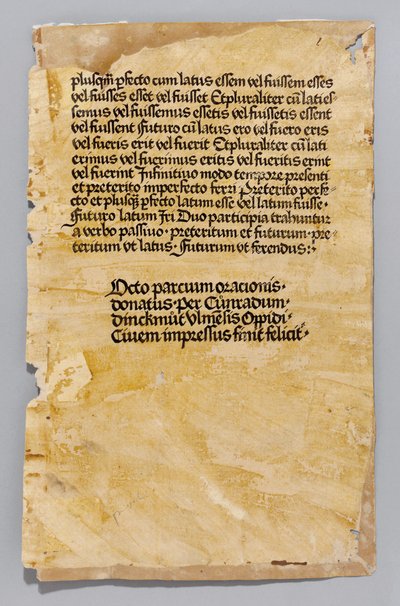 plusqm̄ ꝑfecto cum latus essem vel fuissem esses
vel fuisses esset vel fuisset Etpluraliter cū lati es⸗
semus vel fuissemus essetis vel fuissetis essent
vel fuissent Futuro cū latus ero vel fuero eris
vel fueris erit vel fuerit Etpluraliter cū lati
erimus vel fuerimus eritis vel fueritis erint
vel fuerint Infinitiuo modo tempore presenti
et preterito imperfecto ferri Preterito perfe⸗
cto et plusqȝ ꝑfecto latum esse vel latum fuisse⸗
Futuro latum Iri Duo participia trahuntur
a verbo passiuo· preteritum et futurum· pre⸗
teritum vt latus· Futurum vt ferendus:·
Octo parcium oracionis·
donatus· Per Cūnradum·
dinckmůt Vlmēsis Oppidi·
Ciuem impressus finit felicit̛·